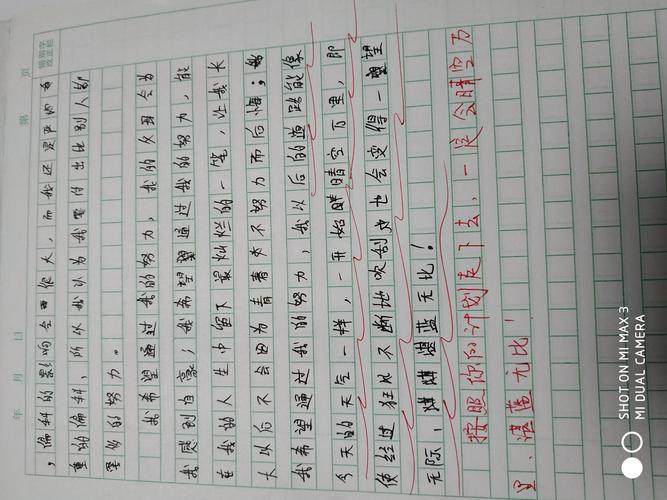 年 月 日 第 页
错别字
改正栏
，偏科的影响会更很大，而我还是严重有
重的偏科，所以我认为我要付出比别人
更多的努力。
我希望通过我的努力，我的父母会为
我感到自豪；我希望通过我的努力，能
在我的人生中留下最灿烂的一笔，让我长
大以后不会因为青春失不努力而后悔；
我希望通过我的努力，我以后的道路能像
今天的天气一样，一开始晴空万里，即
使经过狂风不断地吹刮也会变得一望
无际，湛蓝无比！
按照你的计划走下去，一定会晴空万
里、湛蓝无比！
SHOT ON MI MAX 3
MI DUAL CAMERA